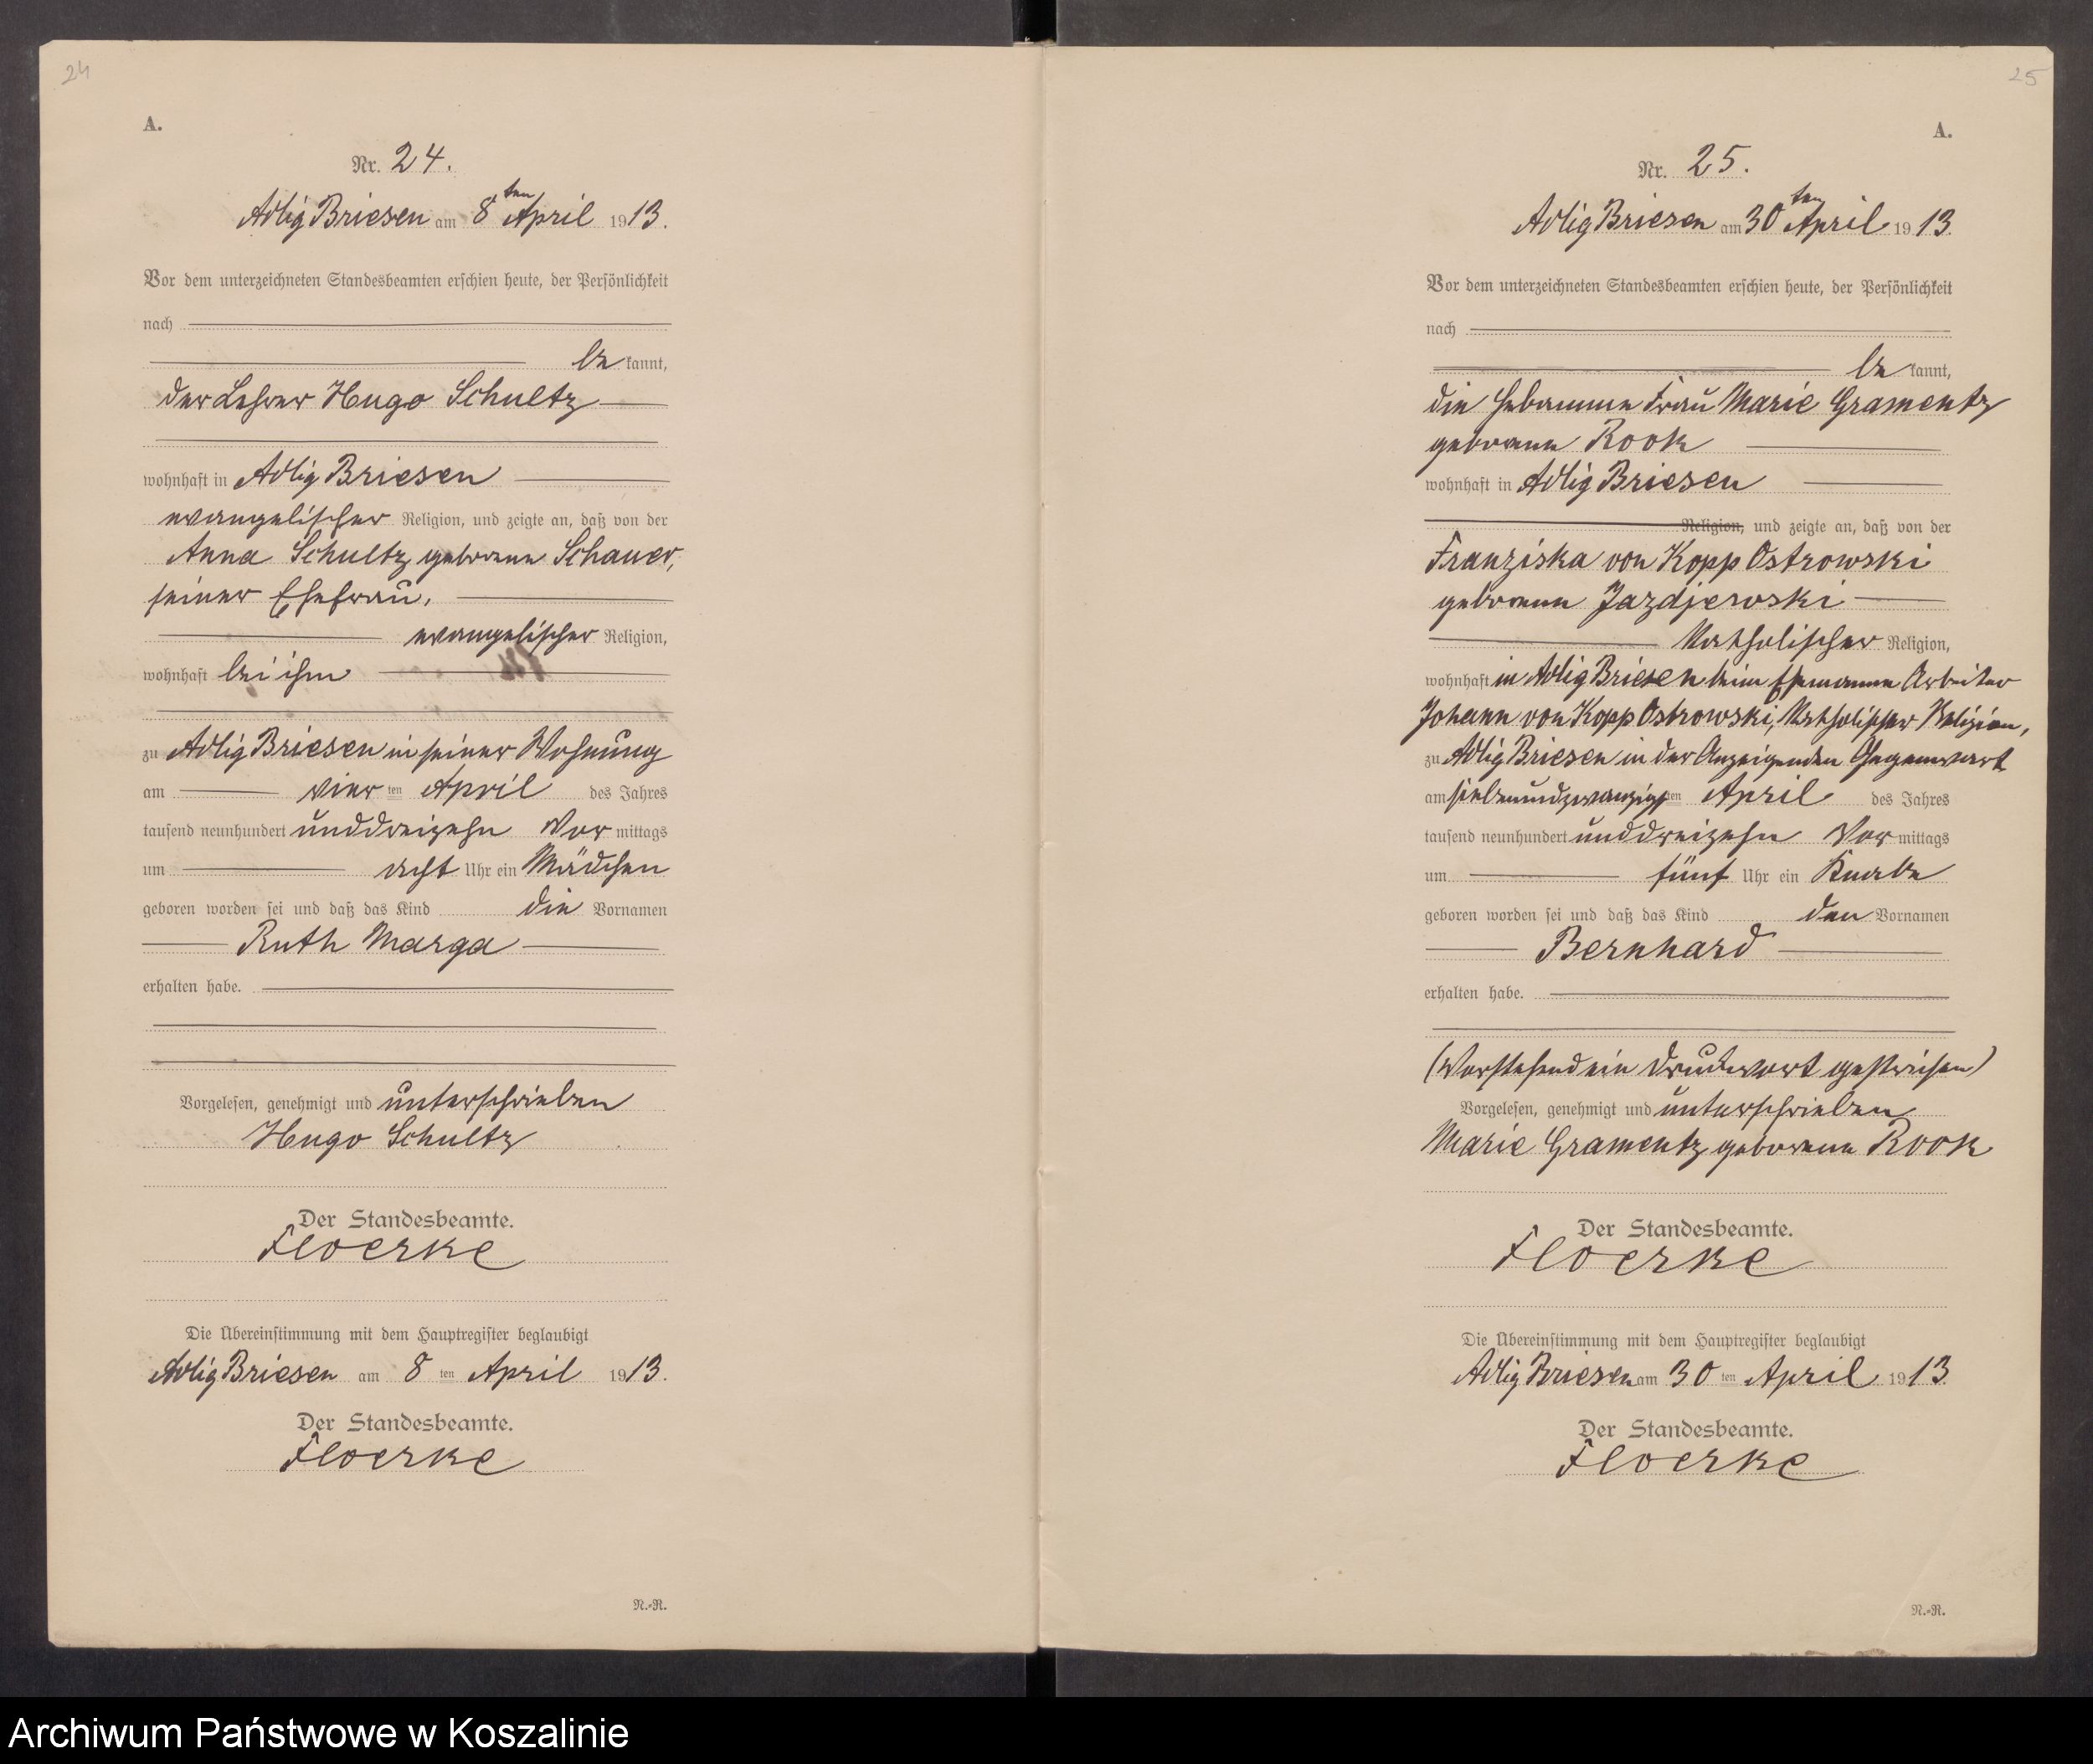 24
A.
Nr. 24.
Adlig Briesen am 8ten April 1913.
Vor dem unterzeichneten Standesbeamten erschien heute, der Persönlichkeit
nach
be kannt,
der Lehrer Hugo Schultz
wohnhaft in Adlig Briesen
evangelischer Religion, und zeigte an, daß von der
Anna Schultz geborene Schauer,
seiner Ehefrau,
evangelischer Religion,
wohnhaft bei ihm
zu Adlig Briesen in seiner Wohnung
am vier ten April des Jahres
tausend neunhundert unddreizehn Vor mittags
um acht Uhr ein Mädchen
geboren worden sei und daß das Kind die Vornamen
Ruth Marga
erhalten habe.
Vorgelesen, genehmigt und unterschrieben
Hugo Schultz
Der Standesbeamte.
Floerke
Die Übereinstimmung mit dem Hauptregister beglaubigt
Adlig Briesen am 8 ten April 1913.
Der Standesbeamte.
Floerke
N.-R.
25
A.
Nr. 25.
Adlig Briesen am 30ten April 1913.
Vor dem unterzeichneten Standesbeamten erschien heute, der Persönlichkeit
nach
be kannt,
die Hebamme Frau Marie Gramentz
geborene Rook
wohnhaft in Adlig Briesen
Religion, und zeigte an, daß von der
Franziska von Kopp Ostrowski
geborene Jazdjewski
katholischer Religion,
wohnhaft in Adlig Briesen beim Ehemanne Arbeiter
Johann von Kopp Ostrowski, katholischer Religion,
zu Adlig Briesen in der Anzeigenden Gegenwart
am siebenundzwanzigsten April des Jahres
tausend neunhundert unddreizehn Vor mittags
um fünf Uhr ein Knabe
geboren worden sei und daß das Kind den Vornamen
Bernhard
erhalten habe.
(Vorstehend ein Druckwort gestrichen)
Vorgelesen, genehmigt und unterschrieben
Marie Gramentz geborene Rook
Der Standesbeamte.
Floerke
Die Übereinstimmung mit dem Hauptregister beglaubigt
Adlig Briesen am 30 ten April 1913
Der Standesbeamte.
Floerke
N.-R.
Archiwum Państwowe w Koszalinie